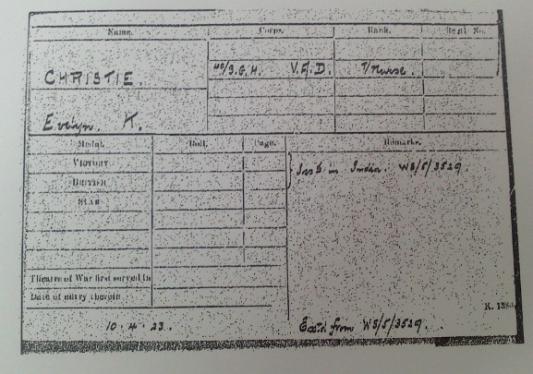 Name. Corps. Rank. Regtl No.
CHRISTIE. 40/B.G.H. V.A.D. T/Nurse.
Evelyn. K.
Medal. Roll. Page. Remarks.
VICTORY Iss'd in India. WS/5/3529.
BRITISH
STAR
Theatre of War first served in
Date of entry therein
K. 1380
10.4.23. Ext'd from WS/5/3529.